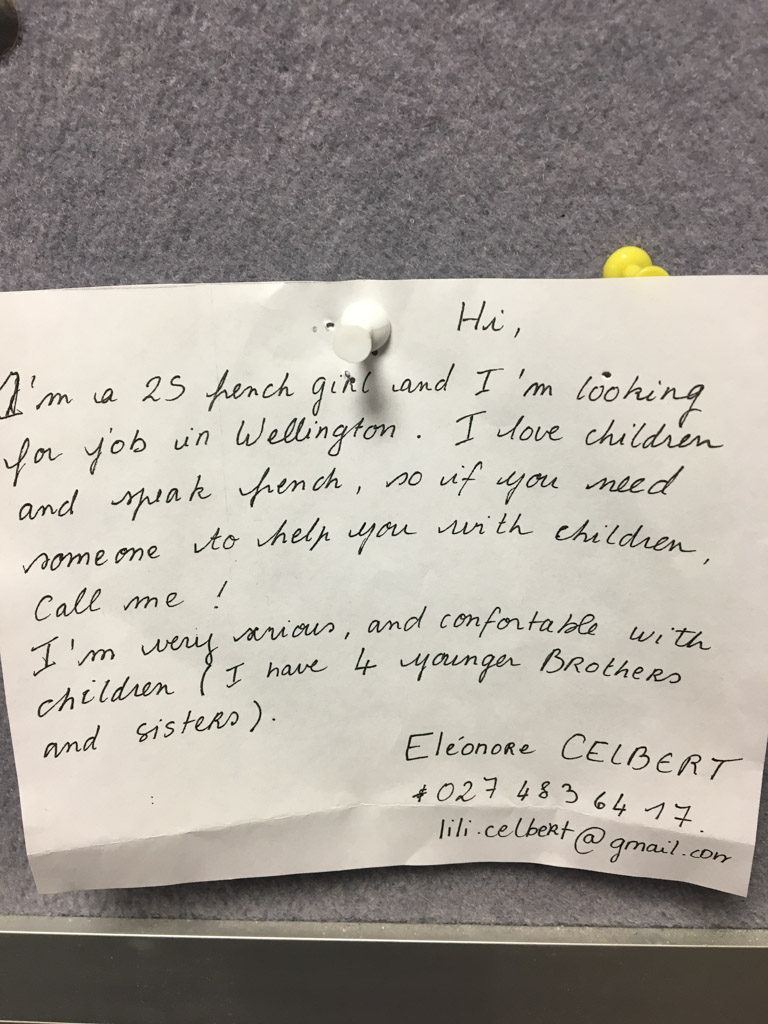 Hi,
I'm a 25 french girl and I'm looking
for job in Wellington. I love children
and speak french, so if you need
someone to help you with children,
Call me !
I'm very serious, and confortable with
children (I have 4 younger BROthERS
and sisteRs).
Eléonore CELBERT
027 483 64 17.
lili.celbert@gmail.com